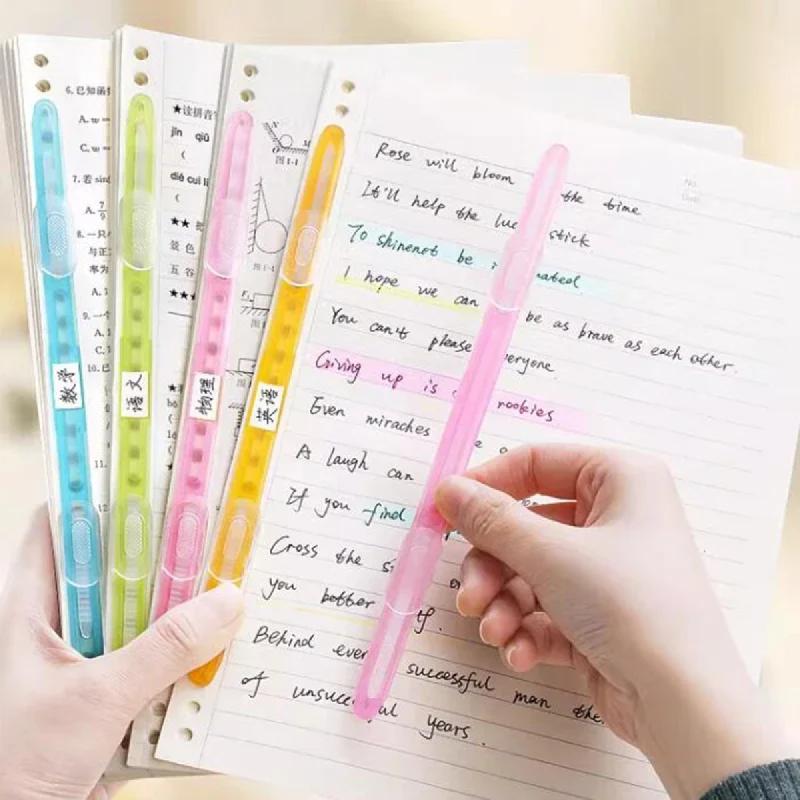 6. 已知函
A. w=
C. w=
7. 若 sin
A. 7/9
8. 一只
与正
率为
A. 1
9. 一个
A.
C.
10. 已
A.
11.
12.
数学
★读拼音写
jīn qiū
(
dié cuì
(
★★
景色
五谷
★★★
语文
N
M
图1-1
F₁
物理
英语
No.
Date
Rose will bloom the time
It'll help the luc stick
To shinenot be mated
I hope we can be as brave as each other.
You can't please eryone
Giving up is rookies
Even miraches
A laugh can
If you find
Cross the s
you better f.
Behind ever successful man the
of unsuccul years.